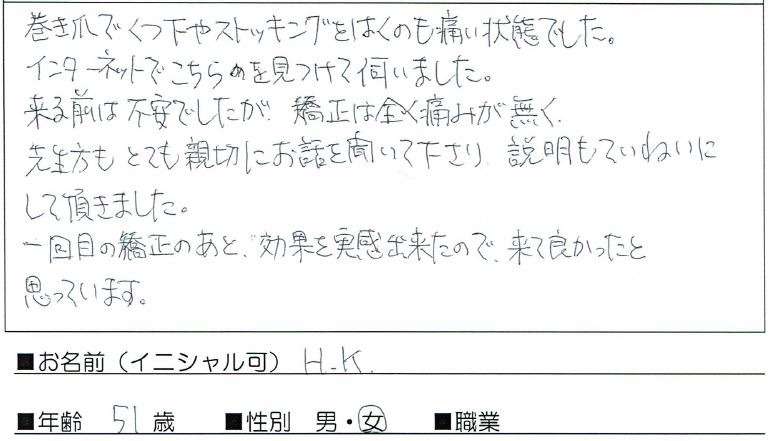 巻き爪でくつ下やストッキングをはくのも痛い状態でした。
インターネットでこちらのを見つけて伺いました。
来る前は不安でしたが、矯正は全く痛みが無く、
先生方もとても親切にお話を聞いて下さり、説明もていねいに
して頂きました。
一回目の矯正のあと、効果を実感出来たので、来て良かったと
思っています。
■お名前（イニシャル可） H.K.
■年齢 51歳 ■性別 男・女 ■職業